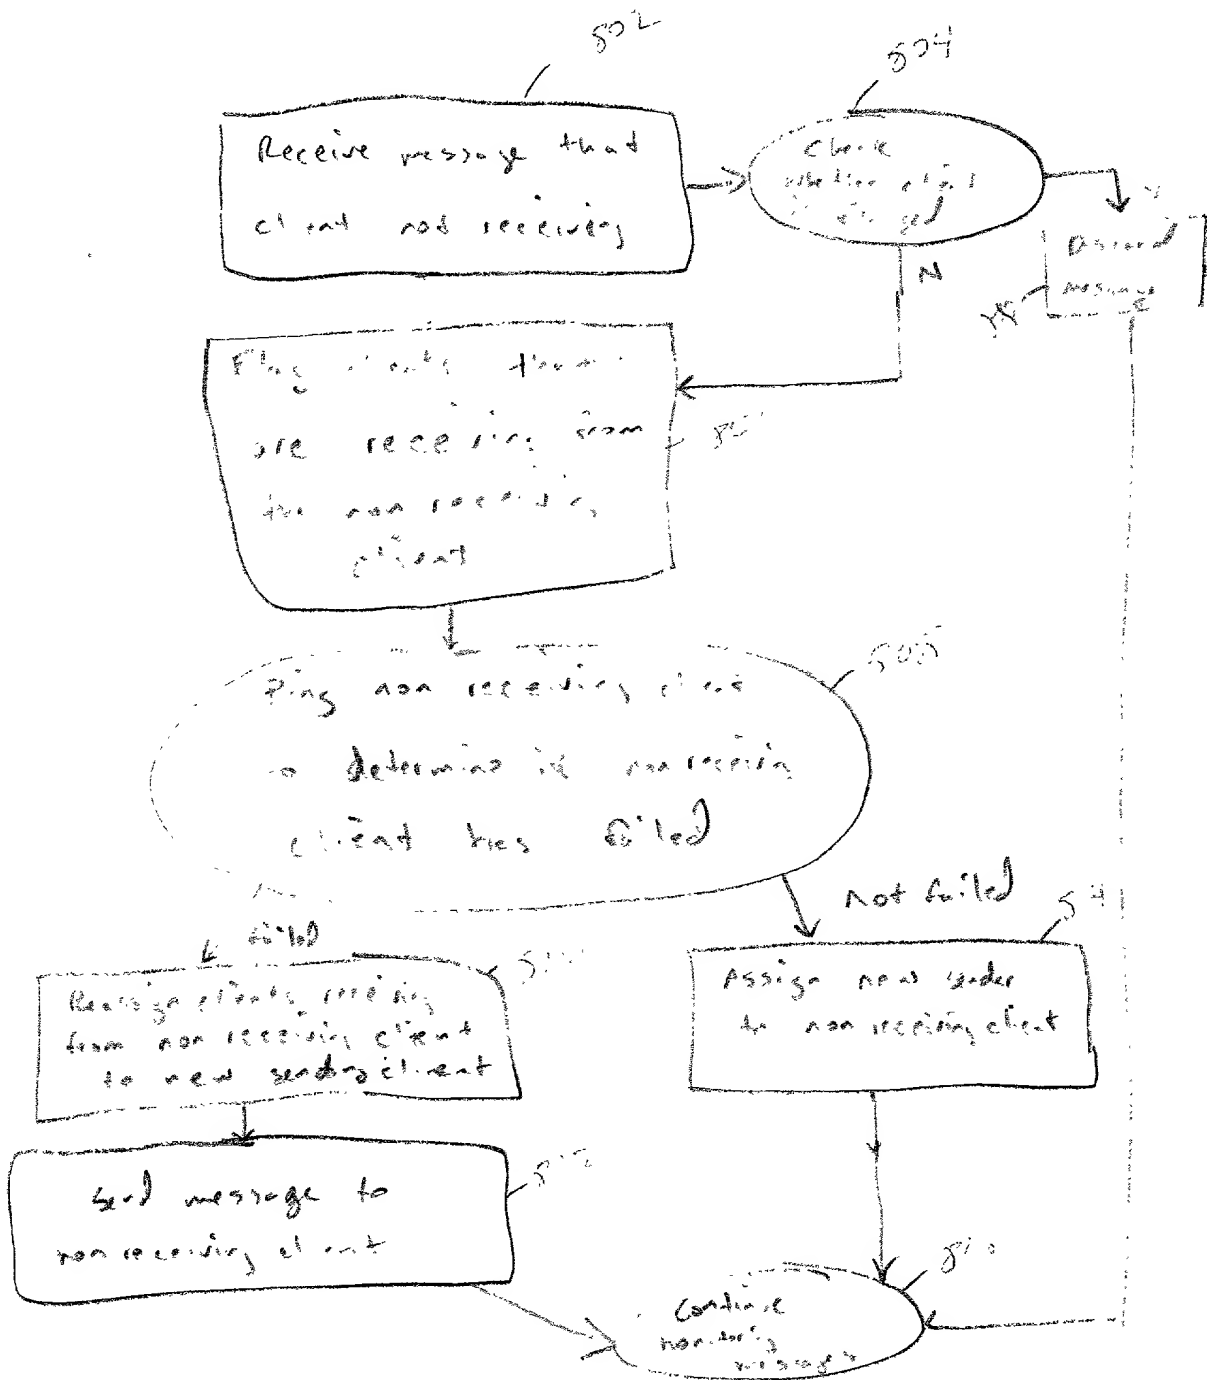 802
804
Receive message that
client not receiving
Check
whether client
is flagged
N
Discard
message
Flag clients that
are receiving from
the non receiving
client
Ping non receiving client
to determine if non receiving
client has failed
failed
not failed
Reassign clients receiving
from non receiving client
to new sending client
Assign new sender
to non receiving client
Send message to
non receiving client
Continue
monitoring
messages